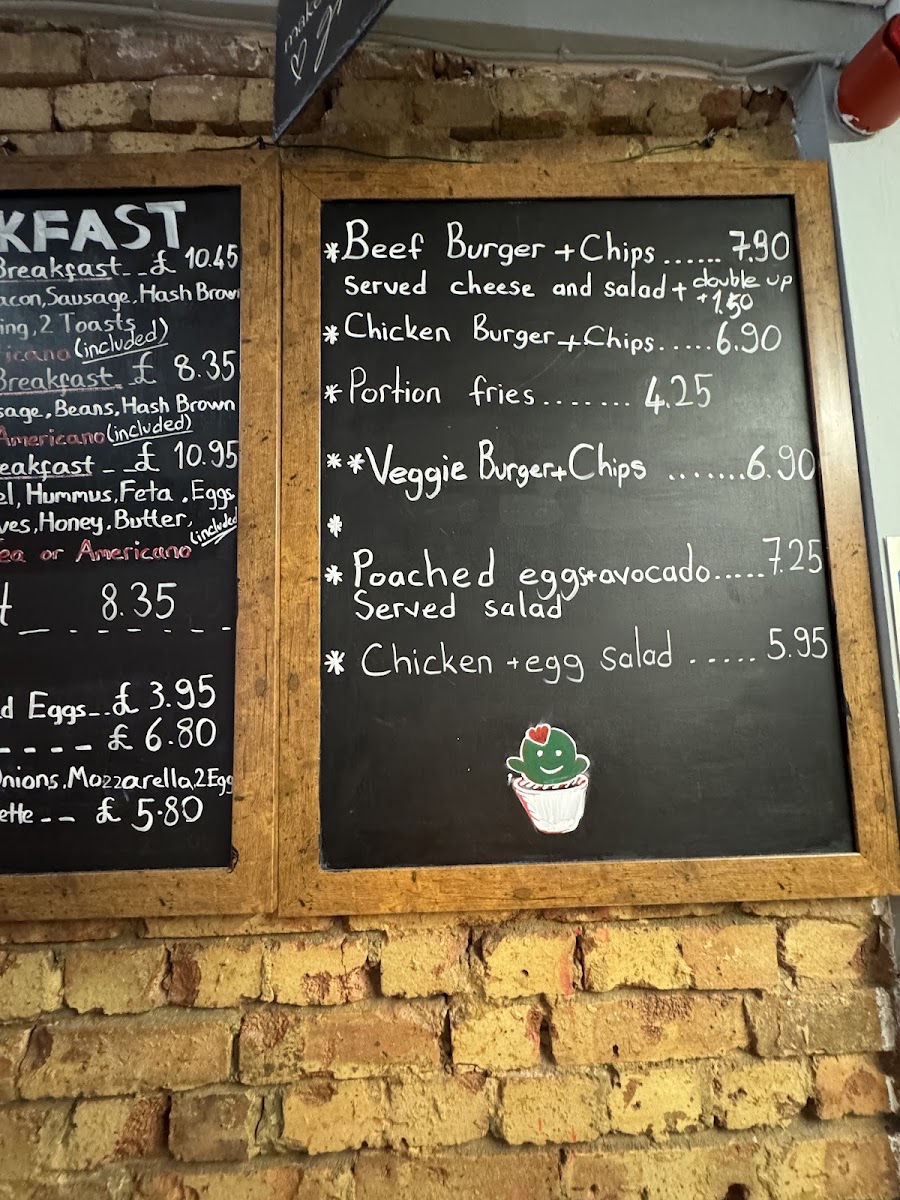 make
KFAST
Breakfast--£ 10.45
acon, Sausage, Hash Brow
ing, 2 Toasts
icano (included)
Breakfast-£ 8.35
sage, Beans, Hash Brown
Americano (included)
eakfast --£ 10.95
el, Hummus, Feta. Eggs
ves, Honey. Butter,
Tea or Americano (included
8.35
d Eggs--£ 3.95
---- £ 6.80
nions, Mozzarella, 2Egg
ette -- £ 5.80
*Beef Burger + Chips...... 7.90
served cheese and salad + double up
+1.50
*Chicken Burger + Chips.....6.90
*Portion fries....... 4.25
**Veggie Burger+Chips .......6.90
*
*Poached eggs+avocado.....7.25
Served salad
*Chicken + egg salad ..... 5.95